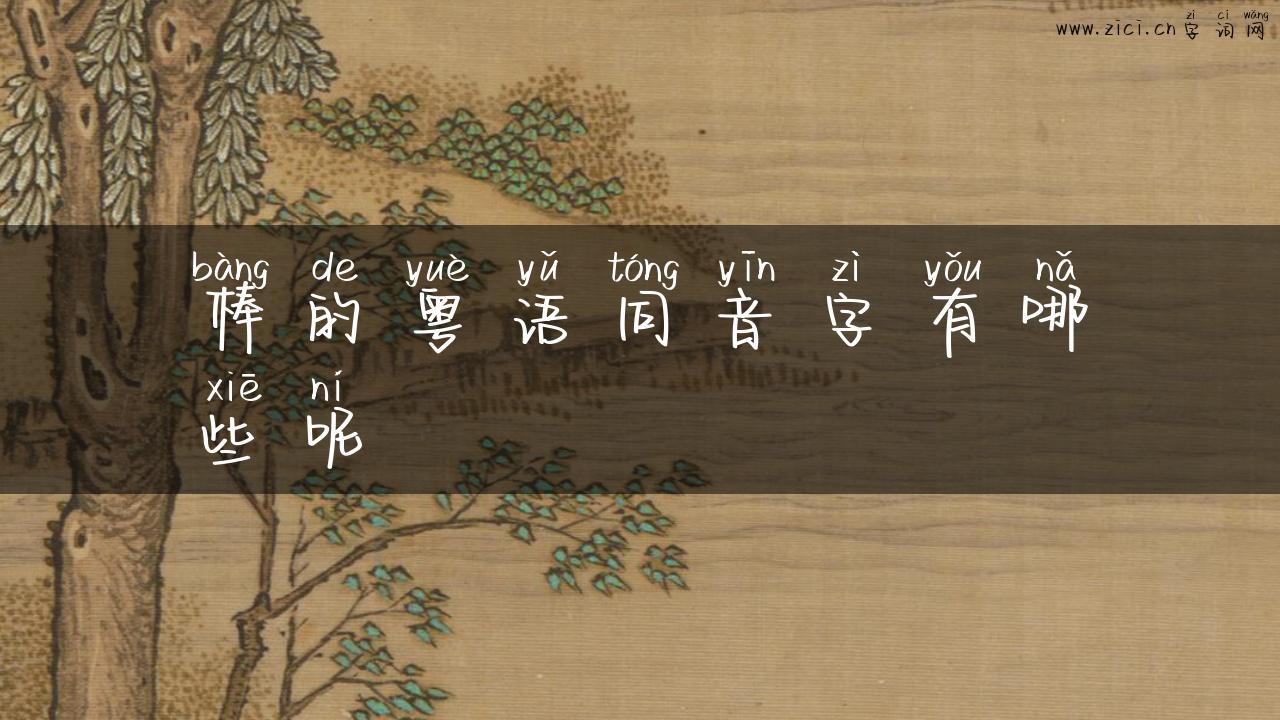 zì cí wǎng
www.zici.cn 字词网
bàng de yuè yǔ tóng yīn zì yǒu nǎ
棒的粤语同音字有哪
xiē ní
些呢